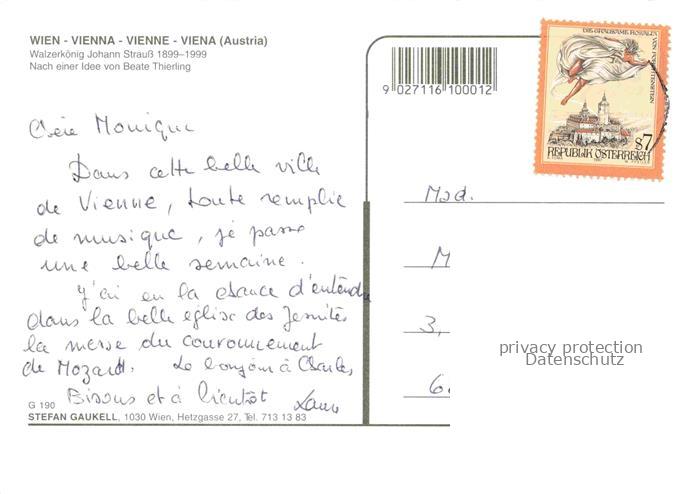 WIEN - VIENNA - VIENNE - VIENA (Austria)
Walzerkönig Johann Strauß 1899–1999
Nach einer Idee von Beate Thierling
9 027116 100012
DIE GRAUSAME ROSALIA VON FORCHTENSTEIN
S7
REPUBLIK ÖSTERREICH
Chère Monique
Dans cette belle ville
de Vienne, toute remplie
de musique, je passe
une belle semaine.
J'ai eu la chance d'entendre
dans la belle eglise des Jesuites
la messe du couronnement
de Mozart. Le bonjour à Charles
Bisous et à bientôt
Mad.
M
3,
6.
privacy protection
Datenschutz
G 190
STEFAN GAUKELL, 1030 Wien, Hetzgasse 27, Tel. 713 13 83